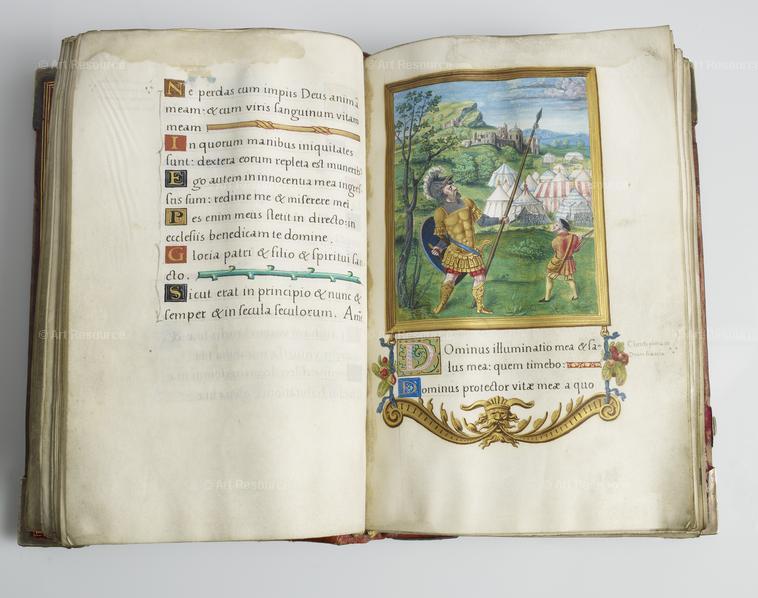 Ne perdas cum impiis Deus animā
meam: & cum viris sanguinum vitam
meam
In quorum manibus iniquitates
sunt: dextera eorum repleta est muneribꝰ
Ego autem in innocentia mea ingreſ-
sus sum: redime me & miserere mei.
Pes enim meus stetit in directo: in
ecclesiis benedicam te domine.
Gloria patri & filio & spiritui san
cto.
Sicut erat in principio & nunc &
semper & in secula seculorum. Amē
Dominus illuminatio mea & sa-
lus mea: quem timebo:
Dominus protector vitæ meæ a quo
© Art Resource
© Art Resource
© Art Resource
© Art Resource
© Art Resource
© Art Resource
© Art Resource
© Art Resource